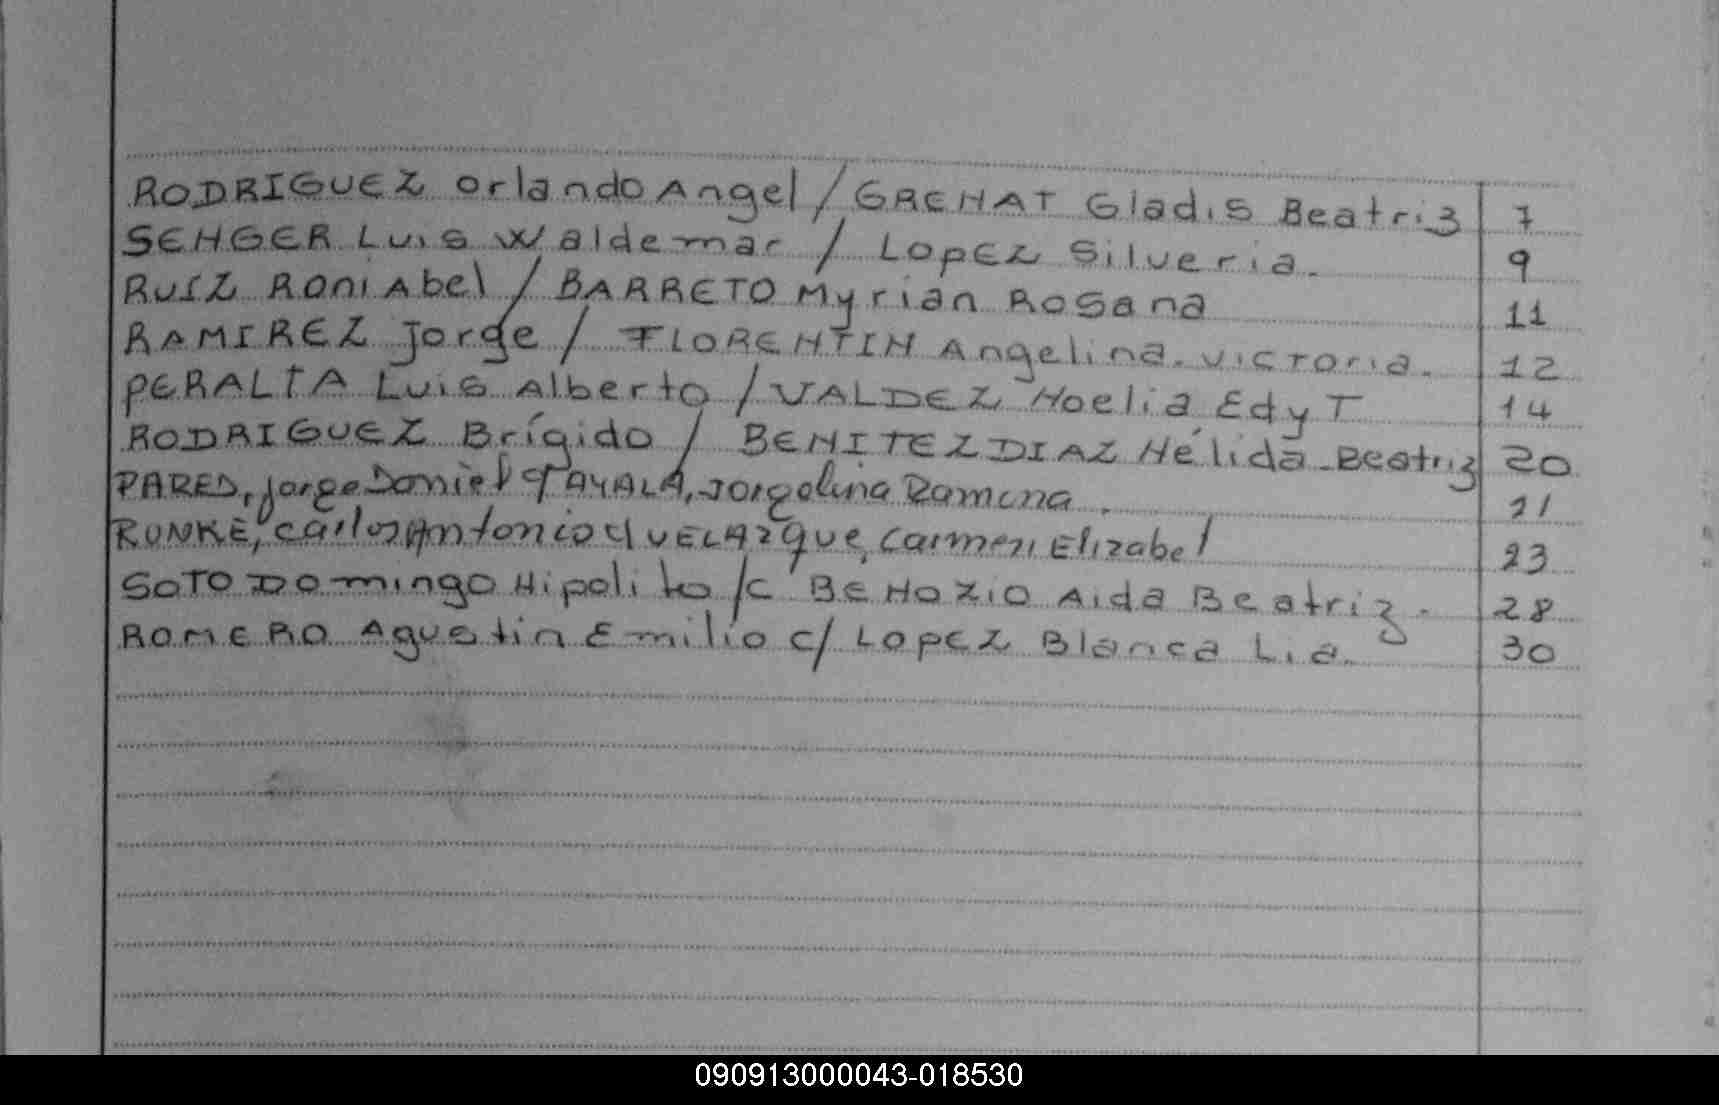 RODRIGUEZ Orlando Angel / GRENAT Gladis Beatriz 7
SENGER Luis Waldemar / LOPEZ Silveria. 9
RUIZ Roni Abel / BARRETO Myrian Rosana 11
RAMIREZ Jorge / FLORENTIN Angelina Victoria. 12
PERALTA Luis Alberto / VALDEZ Noelia EdyT 14
RODRIGUEZ Brígido / BENITEZ DIAZ Nélida Beatriz 20
PARED, Jorge Daniel y AYALA, Jorgelina Ramona. 21
RUNKE, Carlos Antonio y VELAZQUE, Carmen Elizabel 23
SOTO Domingo Hipolito /c BENOZIO Aida Beatriz. 28
ROMERO Agustin Emilio c/ LOPEZ Blanca Lia. 30
090913000043-018530